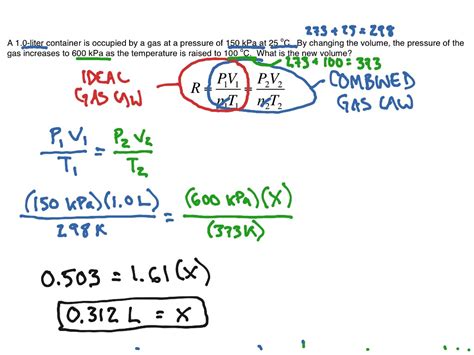 273 + 25 = 298
A 1.0-liter container is occupied by a gas at a pressure of 150 kPa at 25 °C. By changing the volume, the pressure of the
gas increases to 600 kPa as the temperature is raised to 100 °C. What is the new volume?
273 + 100 = 373
IDEAL GAS LAW
R = P₁V₁ / n₁T₁ = P₂V₂ / n₂T₂
COMBINED GAS LAW
P₁V₁ / T₁ = P₂V₂ / T₂
(150 kPa)(1.0 L) / 298 K = (600 kPa)(X) / (373K)
0.503 = 1.61(X)
0.312 L = X